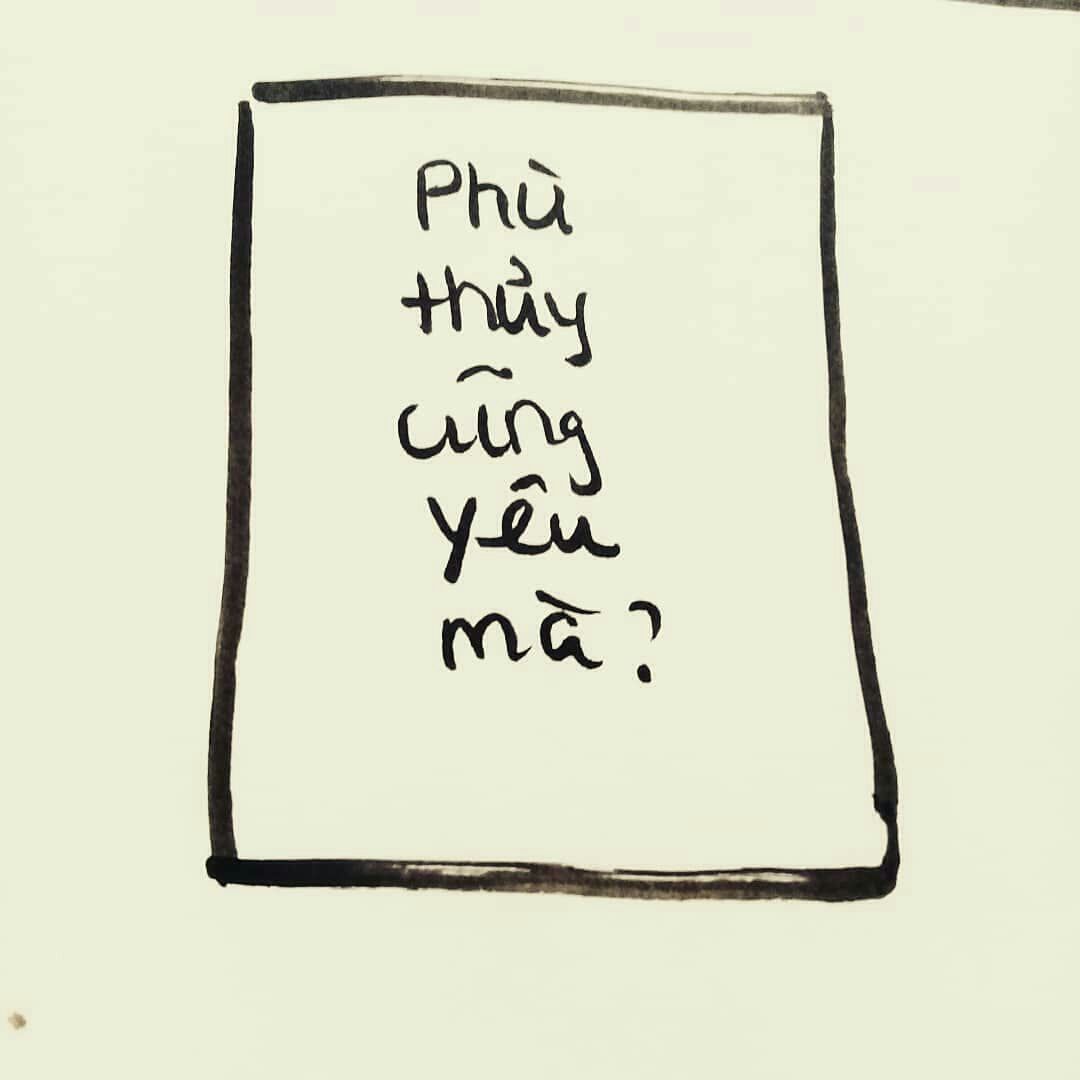 Phù
thủy
cũng
yêu
mà?